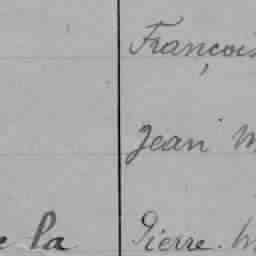 François
Jean
la Pierre